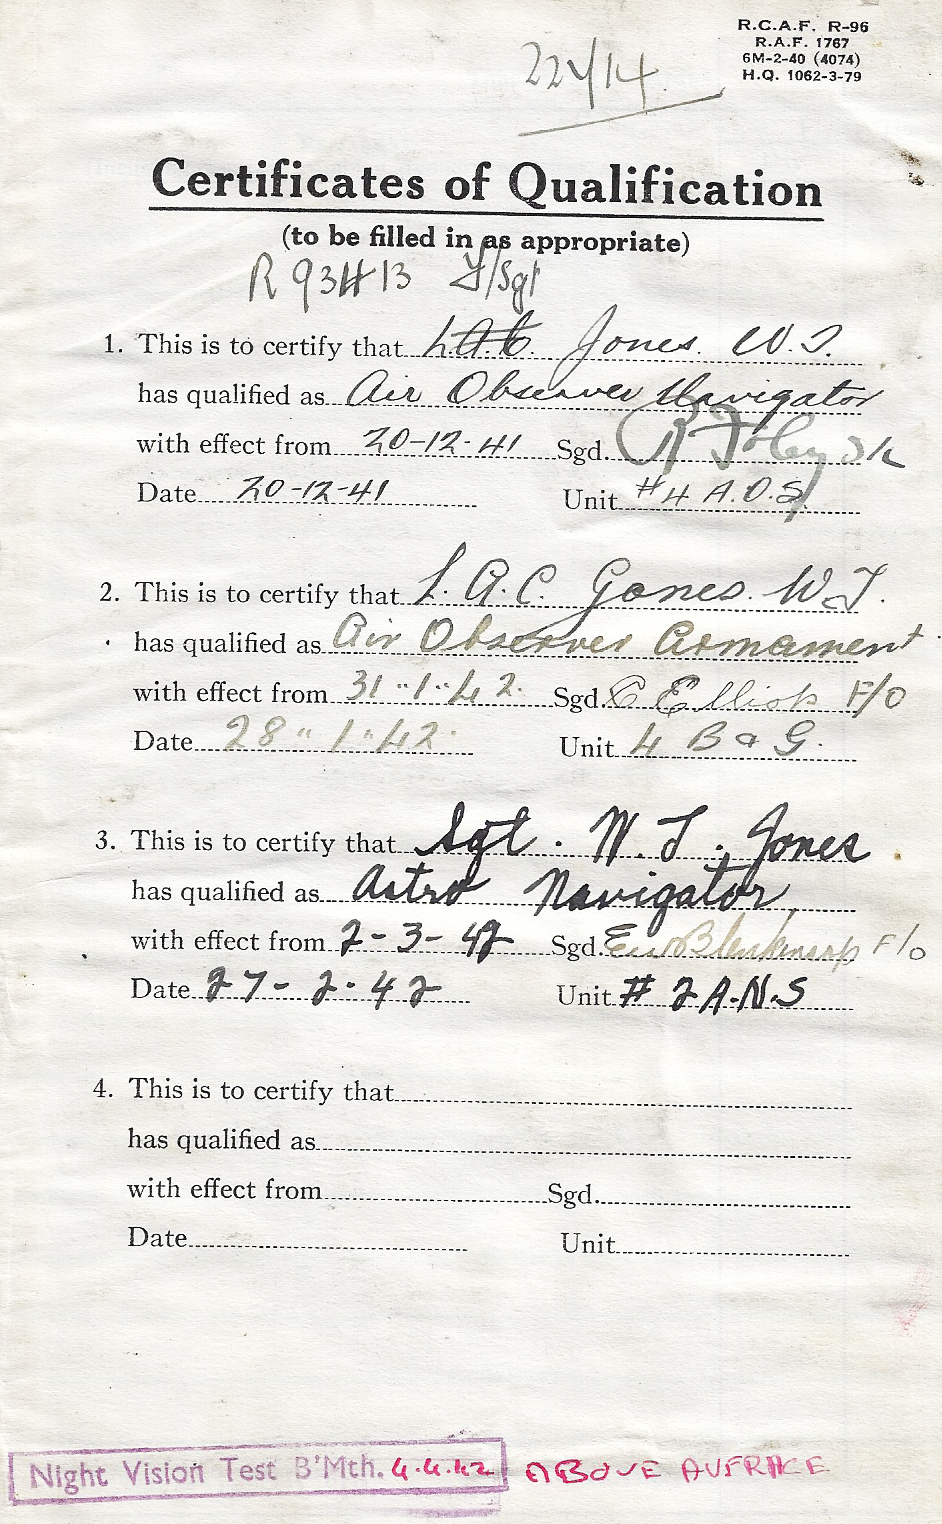 R.C.A.F. R-96
R.A.F. 1767
6M-2-40 (4074)
H.Q. 1062-3-79
22Y/14
Certificates of Qualification
(to be filled in as appropriate)
R 93413 F/Sgt
1. This is to certify that L.A.C. Jones. W.T.
has qualified as Air Observer Navigator
with effect from 20-12-41 Sgd. R Foley
Date 20-12-41 Unit #4 A.O.S.
2. This is to certify that L.A.C. Gones. W.T.
has qualified as Air Observer Armament
with effect from 31"1"42. Sgd. C Elliott F/O
Date 28"1"42. Unit 4 B & G.
3. This is to certify that Sgt. W.T. Jones
has qualified as Astro Navigator
with effect from 2-3-42 Sgd. F/O
Date 27-2-42 Unit # 2 A.N.S
4. This is to certify that
has qualified as
with effect from Sgd.
Date Unit
Night Vision Test B'Mth. 4.4.42 ABOVE AVERAGE